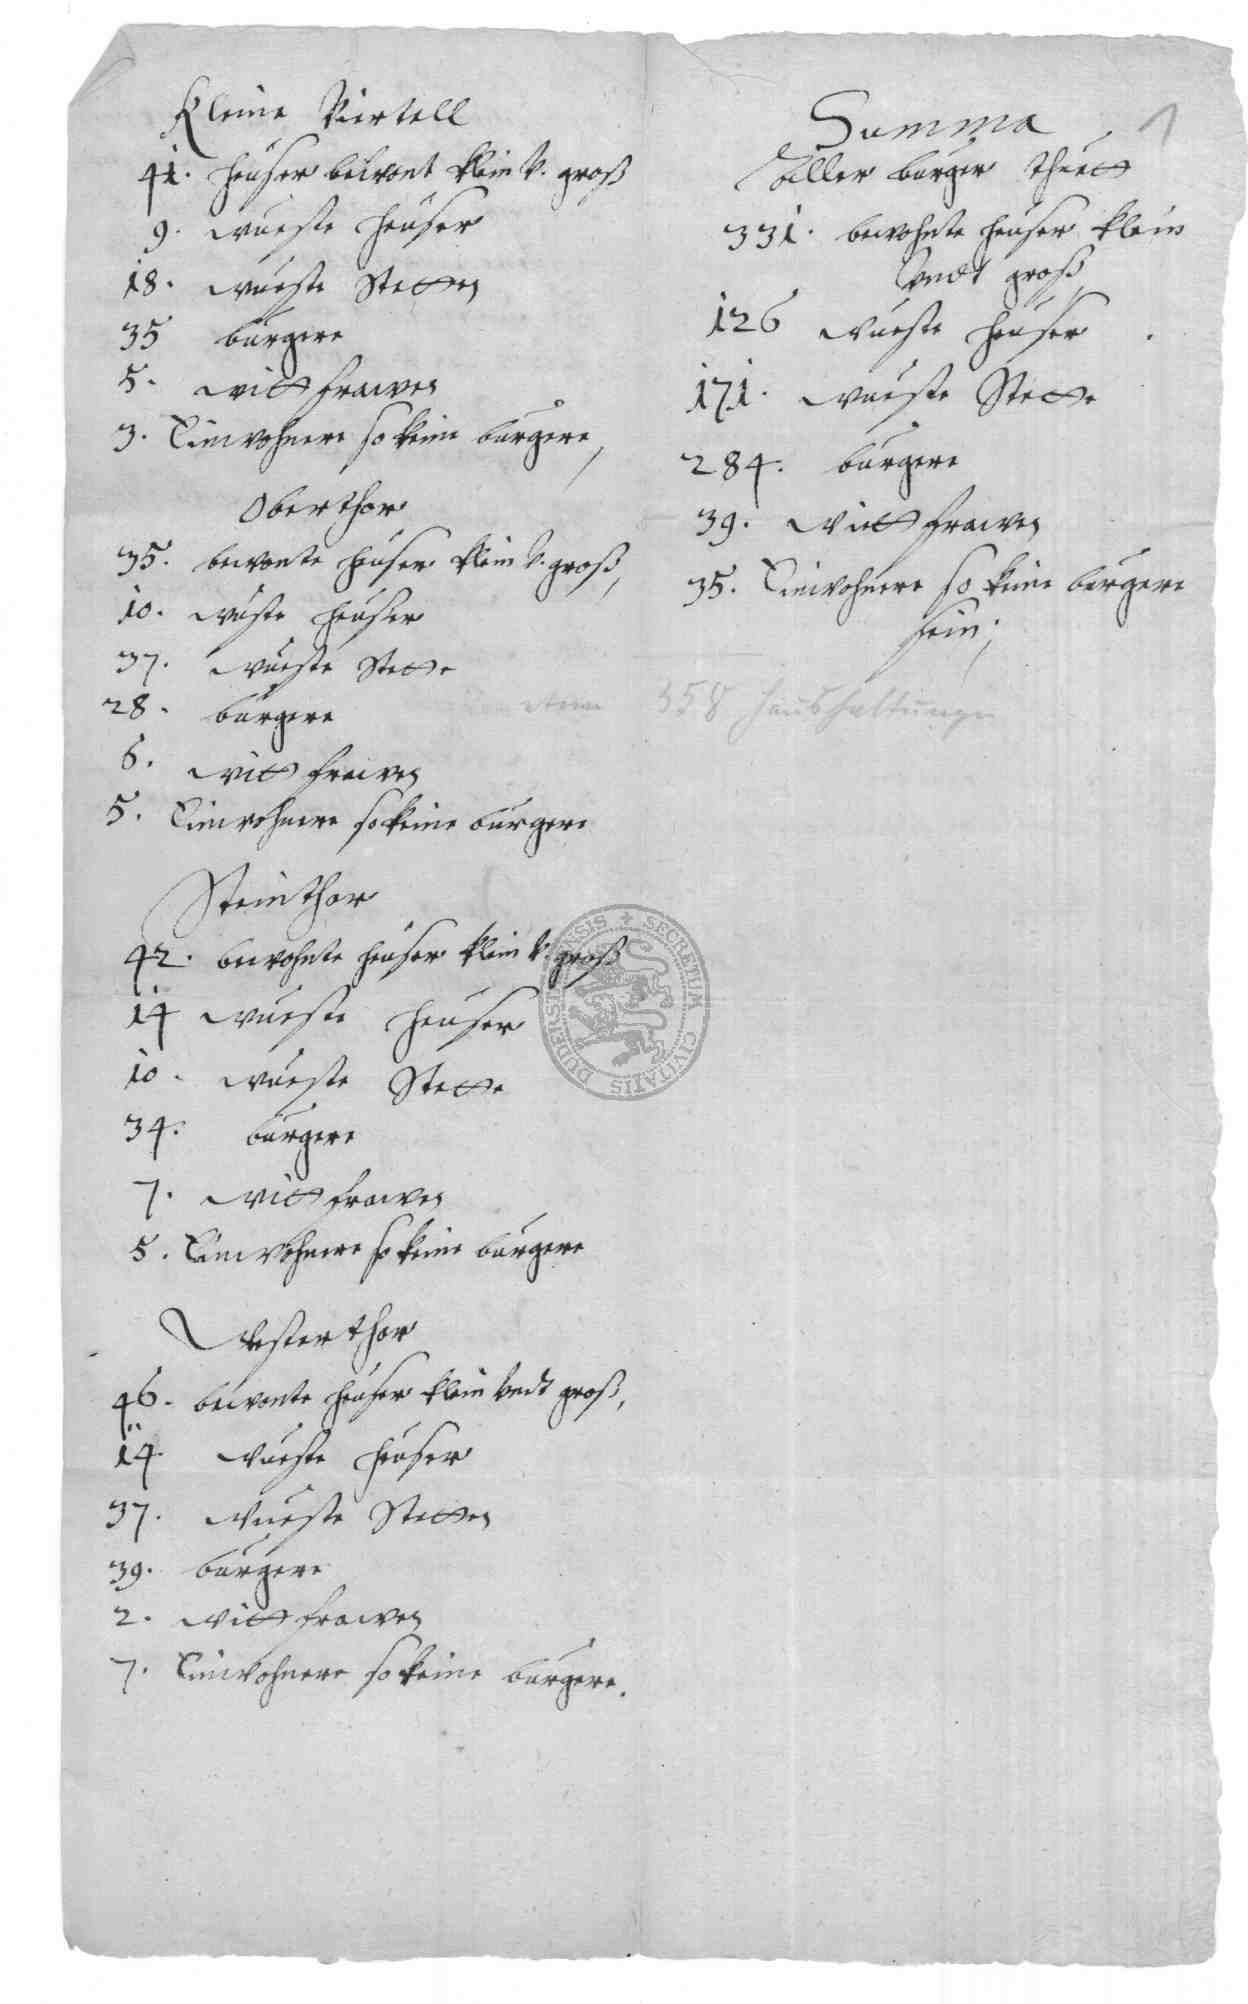 Kleine Viertell
41. heuser bewont klein v. groß
9. wueste heuser
18. wueste Stetten
35 burgere
5. wittfrawen
3. Einwohnere so keine burgere,
Oberthor
35. bewonte heuser klein v. groß,
10. wuste heuser
37. wueste Stette
28. burgere
6. wittfrawen
5. Einwohnere so keine burgere
Steinthor
42. bewohnte heuser klein v. groß
14 wueste heuser
10. wueste Stette
34. burgere
7. wittfrawen
5. Einwohnere so keine burgere
Westerthor
46. bewonte heuser klein vndt groß,
14 wueste heuser
37. wueste Stetten
39. burgere
2. wittfrawen
7. Einwohnere so keine burgere.
1
Summa
aller burger
331. bewohnte heuser klein
vndt groß
126 wueste heuser
171. wueste Stette
284. burgere
39. wittfrawen
35. Einwohnere so keine burgere
sein;
358 haushaltungen
SECRETUM CIVITATIS DUDERSTADENSIS